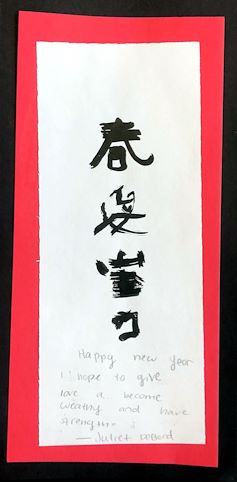 春
愛
富
力
Happy new year
I hope to give
love a become
wealthy and have
strength
— Juliet